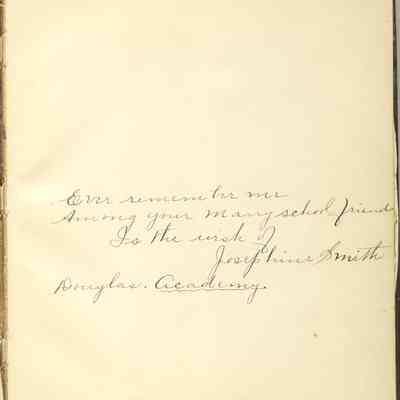 Ever remember me
Among your many school friends
Is the wish of
Josephine Smith
Douglas. Academy.